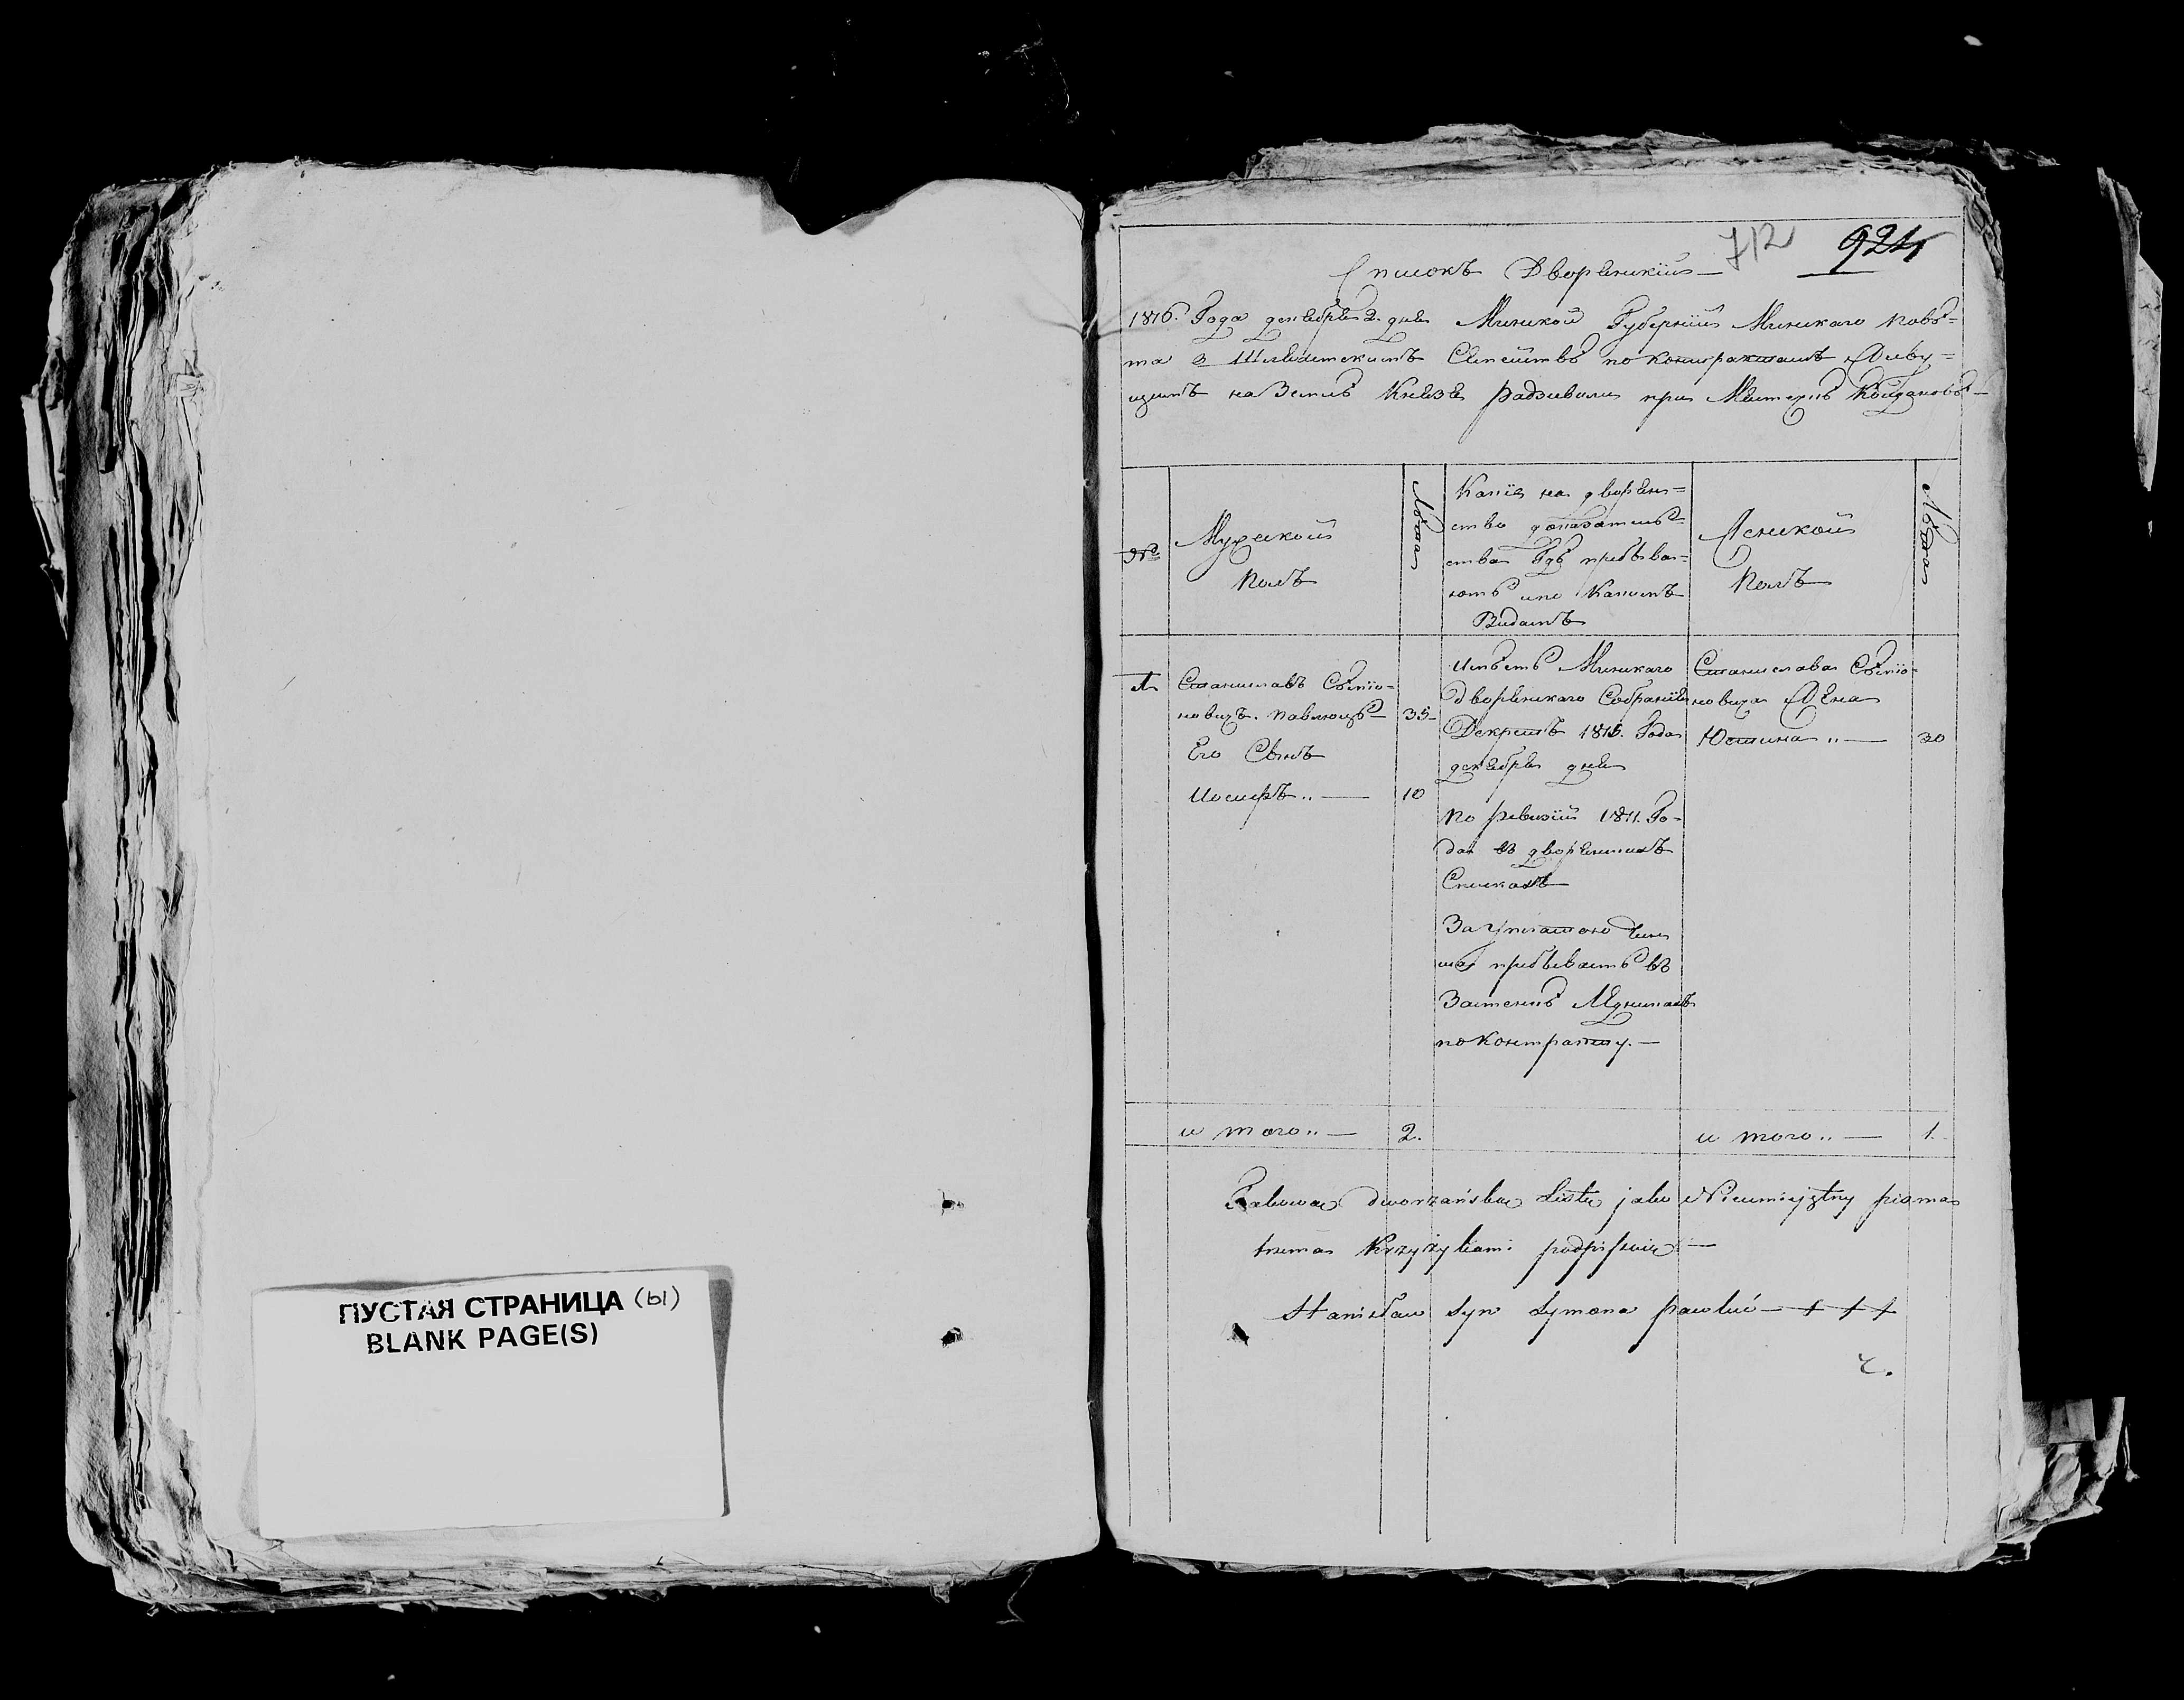 712 924
Списокъ Дворянскій
1816. Года декабря 2. дня Минской Губерніи Минскаго повѣ=
та з Шляхетскимъ Сѣмействѣ по контрактамъ Живу=
щимъ на Землѣ Князя радзивила при Мѣстечкѣ Койдановѣ
№
Мужской
полъ
Лѣта
Какія на дворян=
ство доказатель=
ства Гдѣ пребѣва=
ютъ и по Какимъ
Видамъ
Женской
полъ
Лѣта
1. Станиславъ Сѣміо=
новичъ. павлюць 35
Его Сынъ
Иосифъ.. — 10
Имѣетъ Минскаго
дворянскаго Собранія
Декретъ 1816. Года
декабря дня
по ревизіи 1811. Го=
да въ дворянскихъ
Спискахъ
За уплатою чин
ша пребываетъ въ
Застенкѣ
по контракту. —
Станислава Сѣміо=
новича Жена
Юстина „ — 30
и того.. — 2.
и того.. — 1.
Takową dworzańską Listę jako Nieumiejętny pisma
trzema Krzyżykami podpisuię —
Stanisław Syn Symona pawluć — + + +
ПУСТАЯ СТРАНИЦА (Ы)
BLANK PAGE(S)